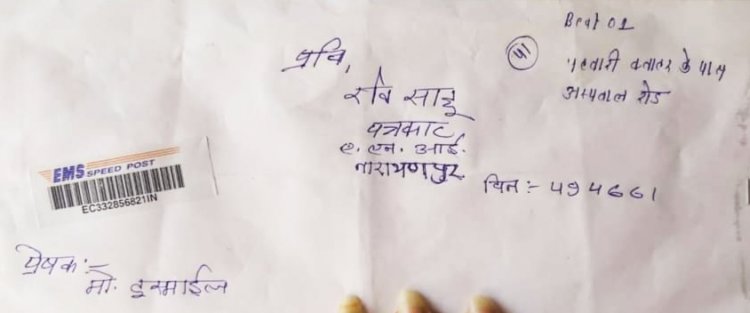 Beat 01
41
पटवारी क्वाटर के पास
अस्पताल रोड
प्रति,
रवि साहू
पत्रकार
ए. एन. आई.
नारायणपुर
पिन :- 494661
EMS SPEED POST
EC332856821IN
प्रेषक :-
मो. इस्माईल